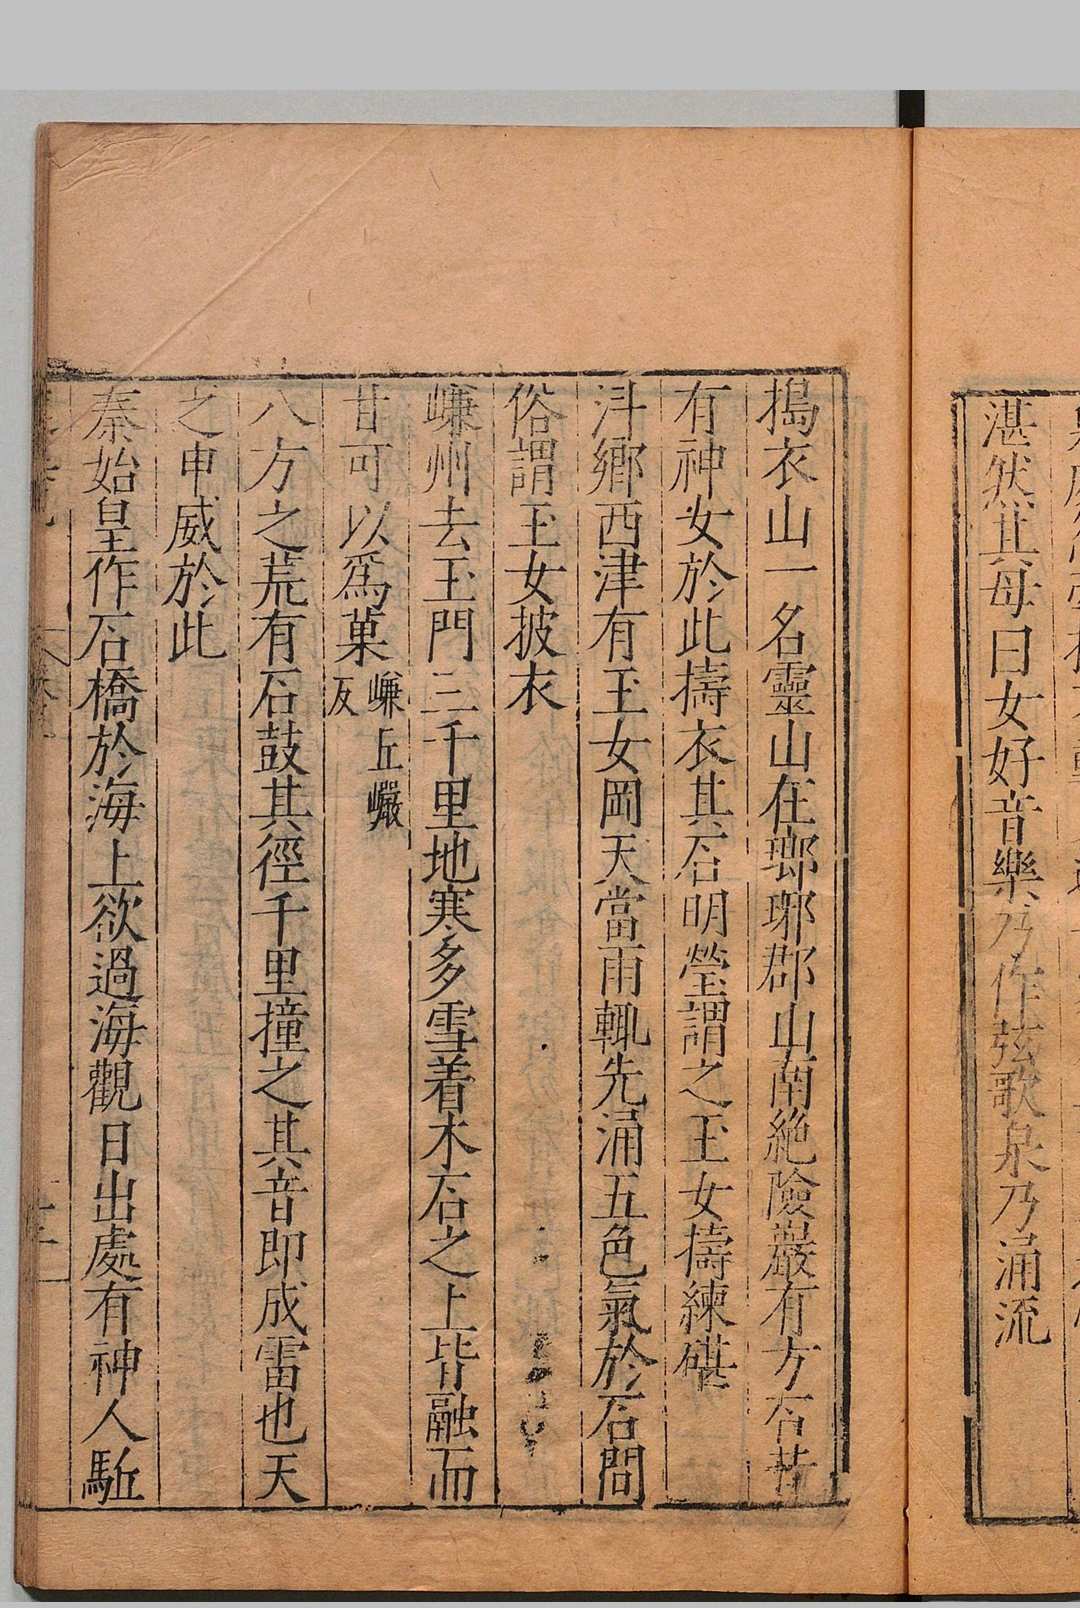 湛然其母曰女好音樂乃作弦歌泉乃涌流
搗衣山一名靈山在瑯琊郡山南絶險巖有方石昔
有神女於此擣衣其石明瑩謂之玉女擣練碪
汧鄉西津有玉女岡天當雨輒先涌五色氣於石間
俗謂玉女披衣
㟻州去玉門三千里地寒多雪着木石之上皆融而
甘可以爲菓㟻丘巖反
八方之荒有石鼓其徑千里撞之其音即成雷也天
之申威於此
秦始皇作石橋於海上欲過海觀日出處有神人駈